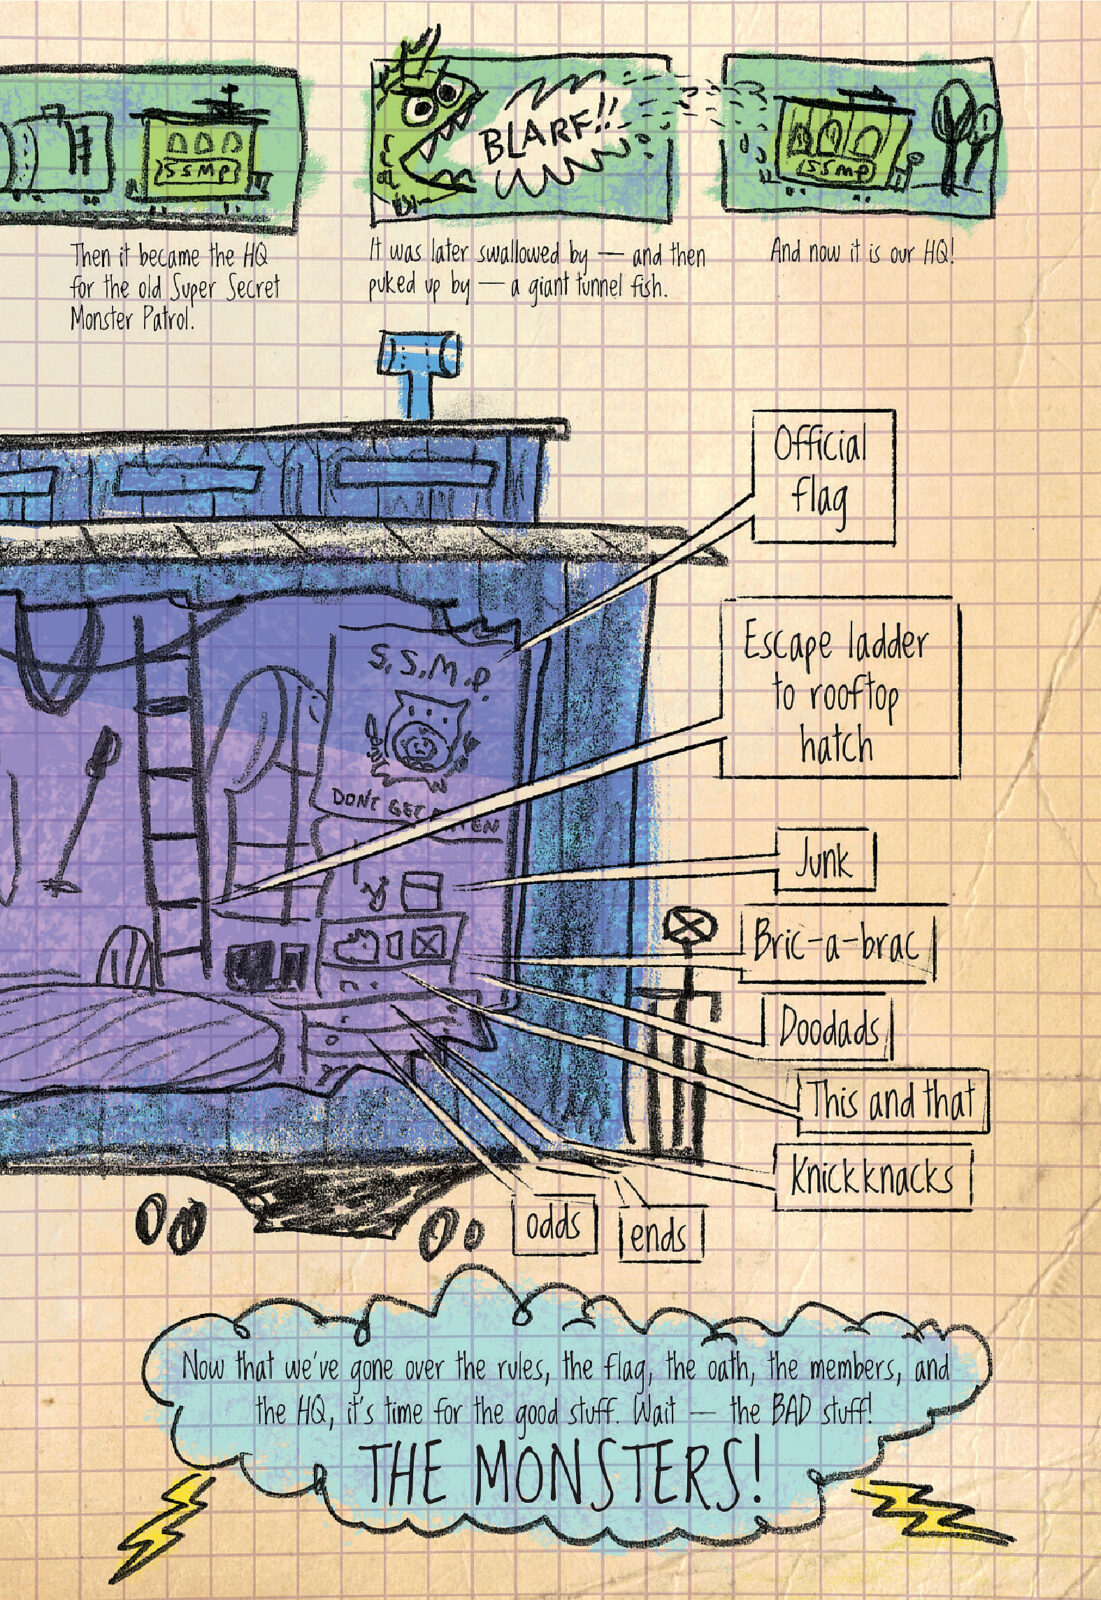 SSMP
BLARF!!
SSMP
Then it became the HQ
for the old Super Secret
Monster Patrol.
It was later swallowed by — and then
puked up by — a giant tunnel fish.
And now it is our HQ!
Official
flag
S.S.M.P.
DON'T GET EATEN
Escape ladder
to rooftop
hatch
Junk
Bric-a-brac
Doodads
This and that
Knickknacks
odds
ends
Now that we've gone over the rules, the flag, the oath, the members, and
the HQ, it's time for the good stuff. Wait — the BAD stuff!
THE MONSTERS!